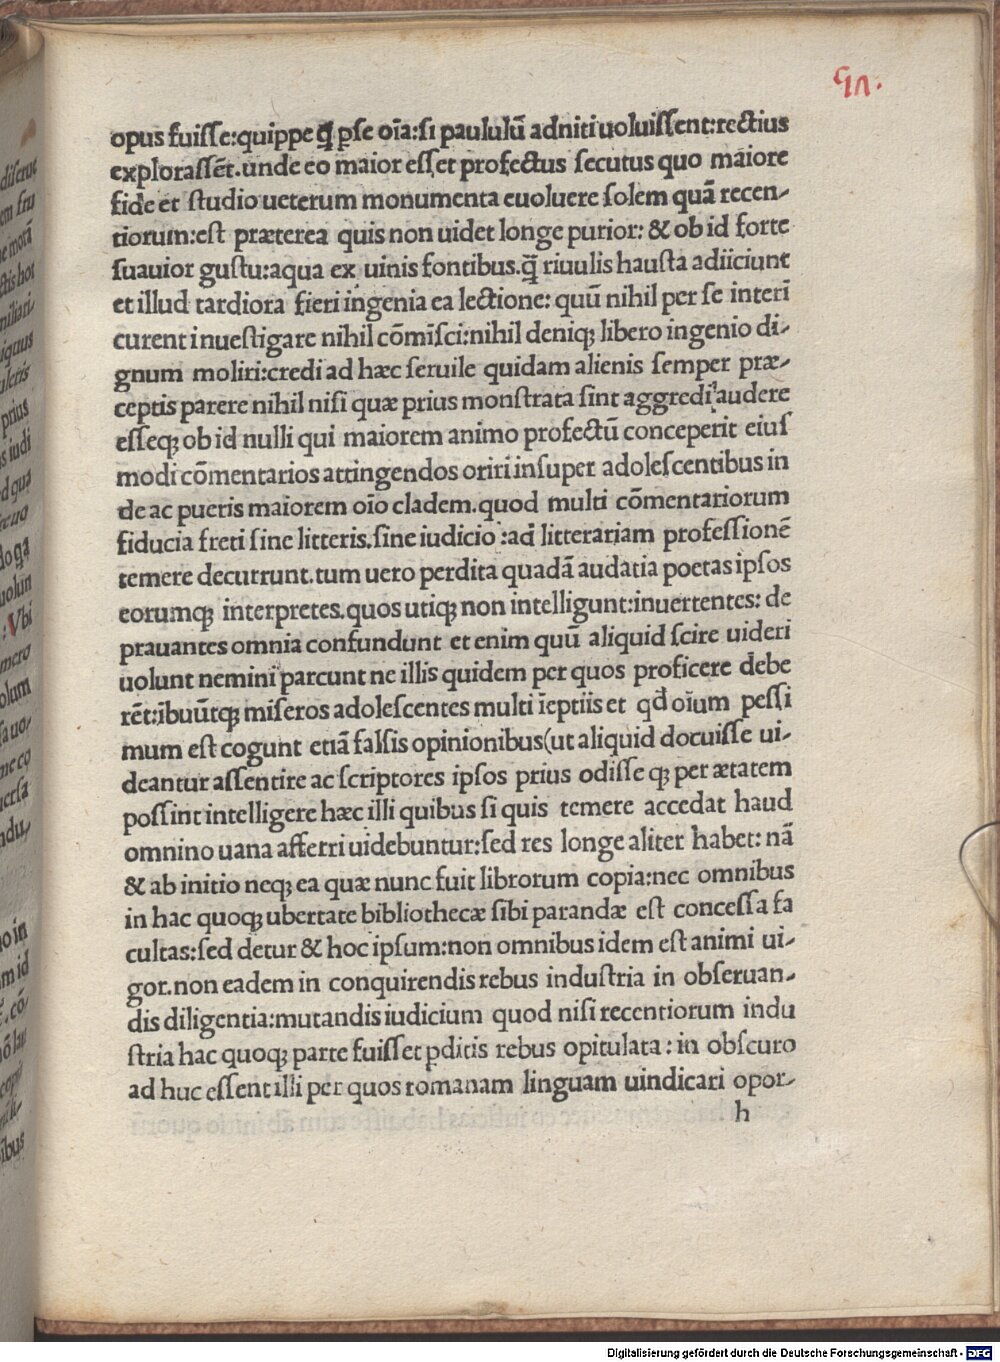 opus fuiſſe:quippe q̄ ꝑſe oīa:ſi paululū adniti uoluiſſent:rectius
exploraſſēt.unde eo maior eſſet profectus ſecutus quo maiore
fide et ſtudio ueterum monumenta euoluere ſolem quā recen-
tiorum:eſt præterea quis non uidet longe purior: & ob id forte
ſuauior guſtu:aqua ex uinis fontibus.q̄ riuulis hauſta adiiciunt
et illud tardiora fieri ingenia ea lectione: quū nihil per ſe interī
curent inueſtigare nihil cōmīſci:nihil deniqꝫ libero ingenio di-
gnum moliri:credi ad hæc ſeruile quidam alienis ſemper præ-
ceptis parere nihil niſi quæ prius monſtrata ſint aggredi'audere
eſſeqꝫ ob id nulli qui maiorem animo profectū conceperit eiuſ
modi cōmentarios attingendos oriri inſuper adoleſcentibus in
de ac pueris maiorem oīo cladem.quod multi cōmentariorum
fiducia freti ſine litteris.ſine iudicio :ad litterariam profeſſionē
temere decurrunt.tum uero perdita quadā audatia poetas ipſos
eorumqꝫ interpretes.quos utiqꝫ non intelligunt:inuertentes: de
prauantes omnia confundunt et enim quū aliquid ſcire uideri
uolunt nemini parcunt ne illis quidem per quos proficere debe
rēt:ibuūtqꝫ miſeros adoleſcentes multi īeptiis et qđ oīum peſſi
mum eſt cogunt etiā falſis opinionibus(ut aliquid docuiſſe ui-
deantur aſſentire ac ſcriptores ipſos prius odiſſe qꝫ per ætatem
poſſint intelligere hæc illi quibus ſi quis temere accedat haud
omnino uana afferri uidebuntur:ſed res longe aliter habet: nā
& ab initio neqꝫ ea quæ nunc fuit librorum copia:nec omnibus
in hac quoqꝫ ubertate bibliothecæ ſibi parandæ eſt conceſſa fa
cultas:ſed detur & hoc ipſum:non omnibus idem eſt animi ui-
gor.non eadem in conquirendis rebus induſtria in obſeruan-
dis diligentia:mutandis iudicium quod niſi recentiorum indu
ſtria hac quoqꝫ parte fuiſſet ꝑditis rebus opitulata : in obſcuro
ad huc eſſent illi per quos romanam linguam uindicari opor-
h
Digitalisierung gefördert durch die Deutsche Forschungsgemeinschaft - DFG